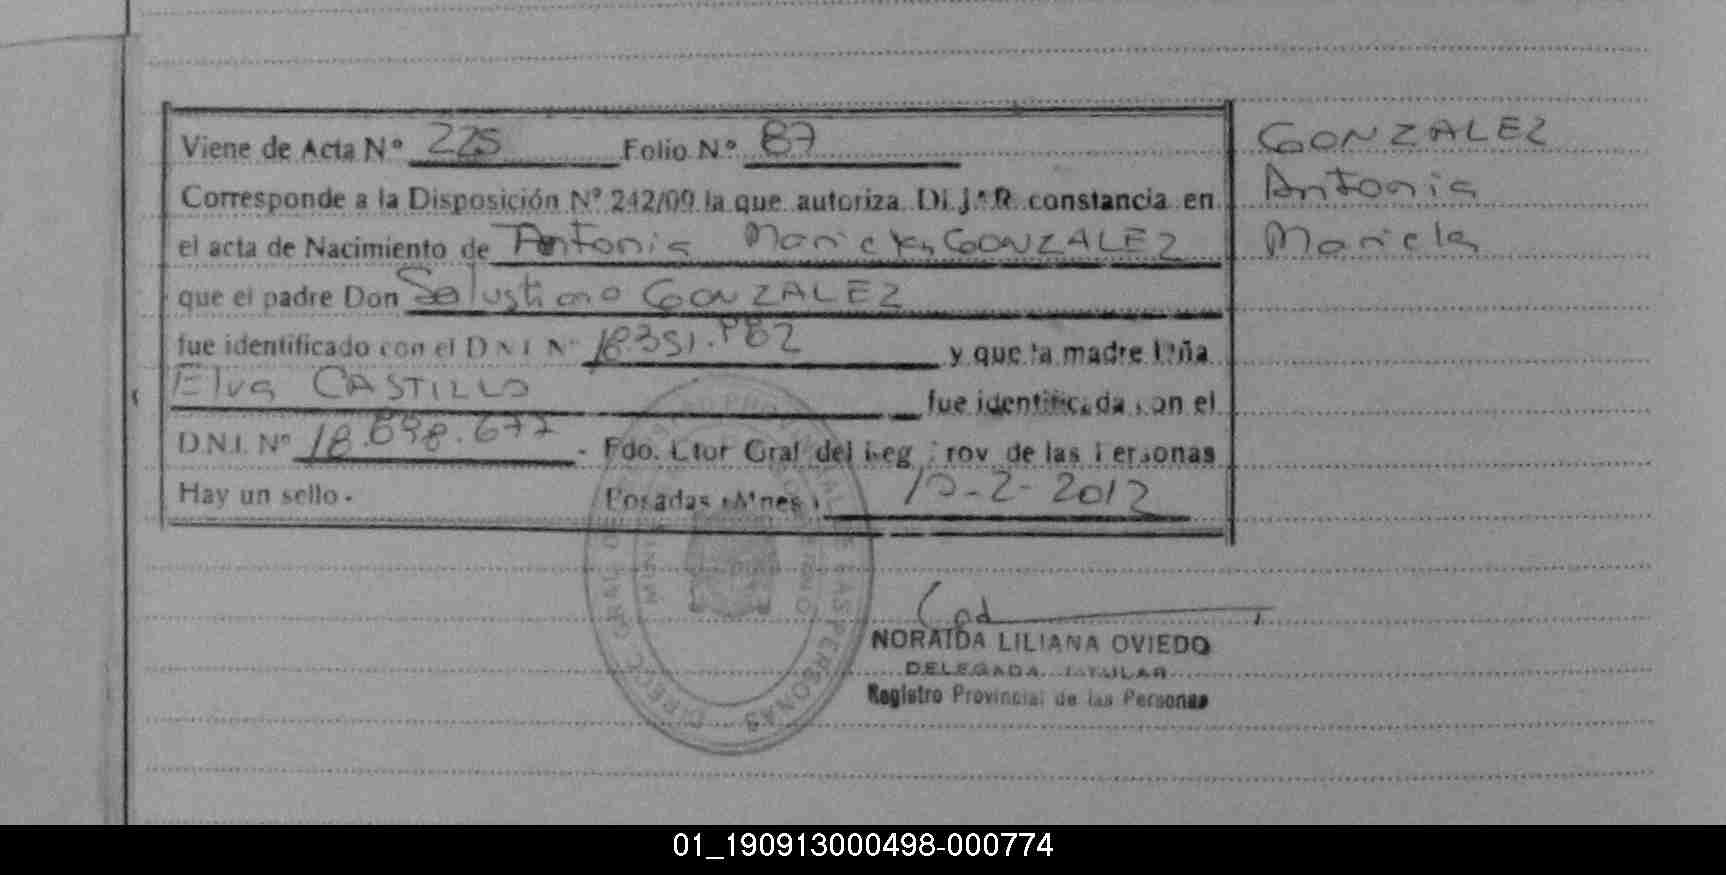 Viene de Acta Nº 225 Folio Nº 87
Corresponde a la Disposición Nº 242/09 la que autoriza constancia en
el acta de Nacimiento de Antonia Mariela GONZALEZ
que el padre Don Salustiano GONZALEZ
fue identificado con el D N I Nº y que la madre Dña
Elva CASTILLO fue identificada con el
D.N.I. Nº 18.898.677 - Fdo. Dtor Gral del Reg Prov de las Personas
Hay un sello - Posadas (Mnes) 2- 2012
GONZALEZ
Antonia
Mariela
NORAIDA LILIANA OVIEDO
DELEGADA TITULAR
Registro Provincial de las Personas
01_190913000498-000774